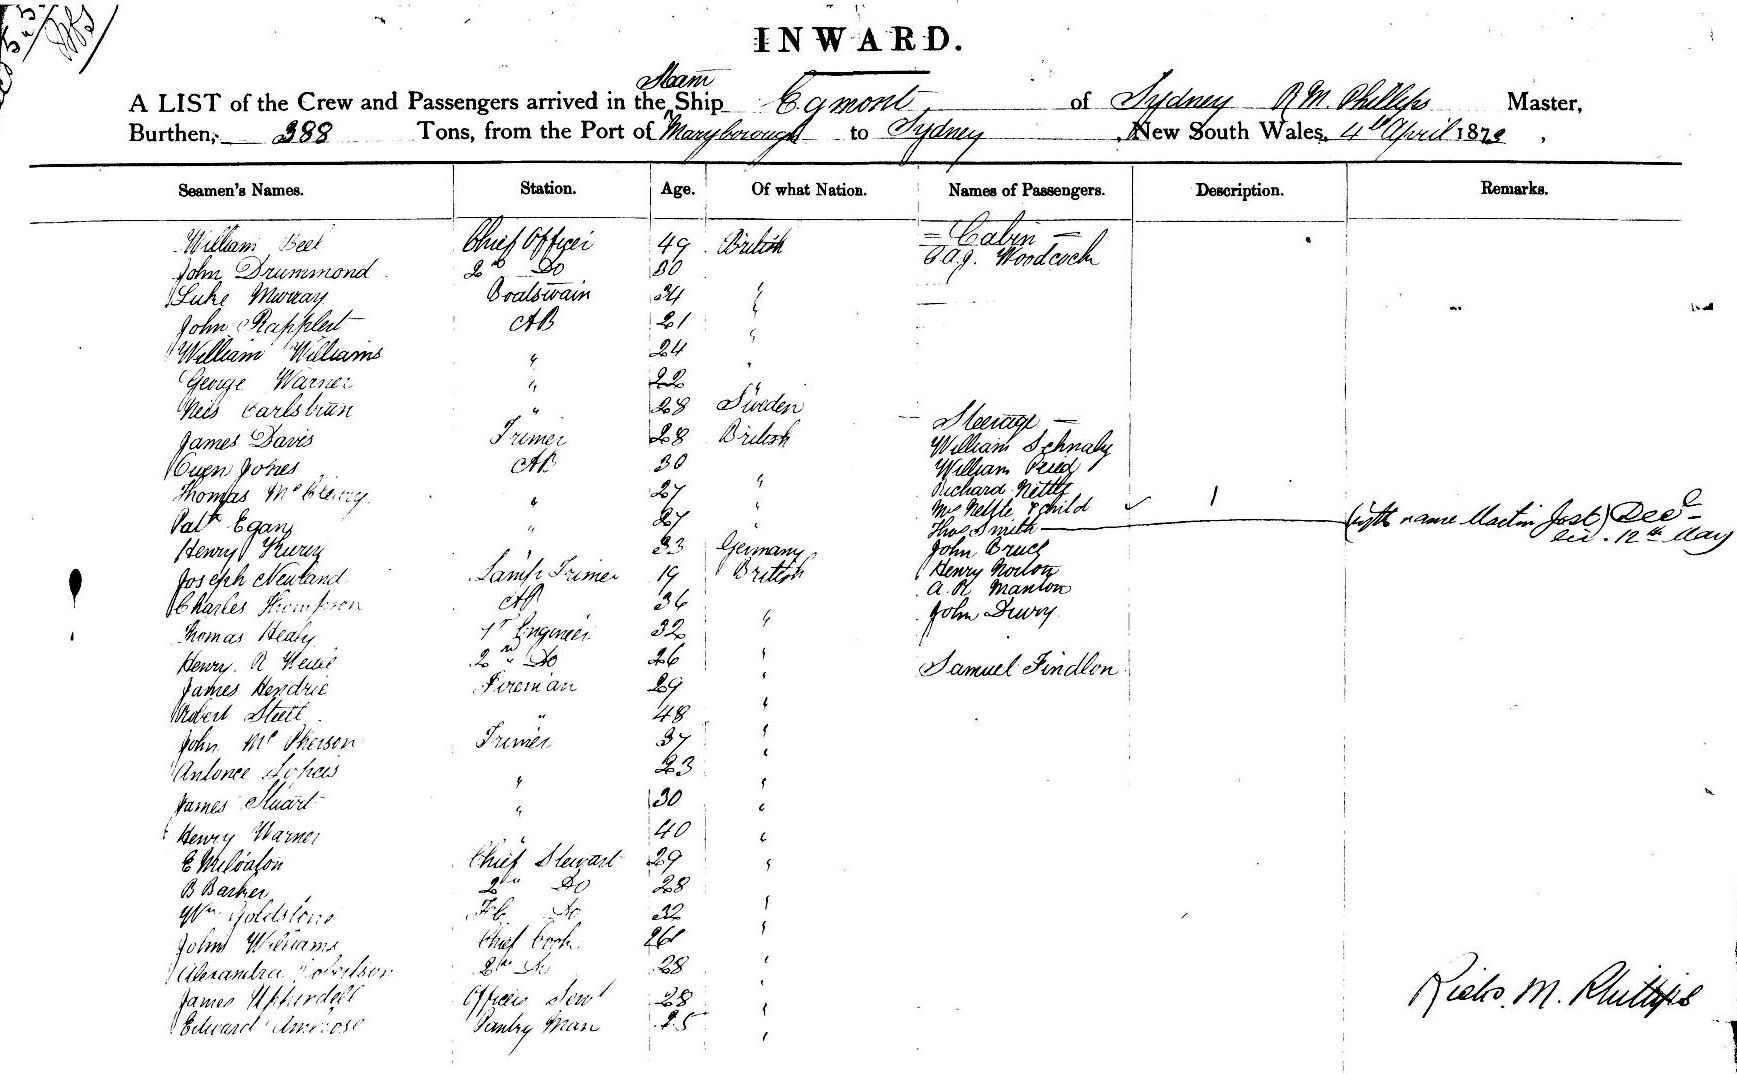 INWARD.
Steam
A LIST of the Crew and Passengers arrived in the Ship Egmont of Sydney R M Phillips Master,
Burthen, 388 Tons, from the Port of Maryborough to Sydney, New South Wales, 4th April 1873,
Seamen's Names. Station. Age. Of what Nation. Names of Passengers. Description. Remarks.
William Beel Chief Officer 49 British = Cabin =
John Drummond 2nd Do 30 " Woodcock
Luke Murray Boatswain 34 "
John Rapplert AB 21 "
William Williams " 24 "
George Warner " 22 "
Neis Carlsbrun " 28 Sweden
James Davis Trimer 28 British Steerage
Owen Jones AB 30 " William Schnaby
Thomas " 27 " William
Patk Egan " 27 " Richard Nettle
Mrs Nettle & child 1
Thos Smith (right name Martin Jost)
12th May
Henry 33 Germany John Bruce
Joseph Newland Lamp Trimer 19 British Henry Norton
Charles Thompson AB 36 " A. R Manton
Thomas Healy 1st Engineer 32 " John Drury
Henry R 2nd Do 26 "
James Hendrie Fireman 29 " Samuel Findlon
Robert Steele " 48 "
John McPherson Trimer 37 "
Antonce " 23 "
James Stuart " 30 "
Henry Warner " 40 "
E Chief Stewart 29 "
B Barker 2nd Do 28 "
Wm Goldstone Do 32 "
John Williams Chief Cook 26 "
Alexandra Robertson 2nd Do 28 "
James Officers Servt 28 "
Edward Ambrose Pantry Man 25 "
Richd. M. Phillips